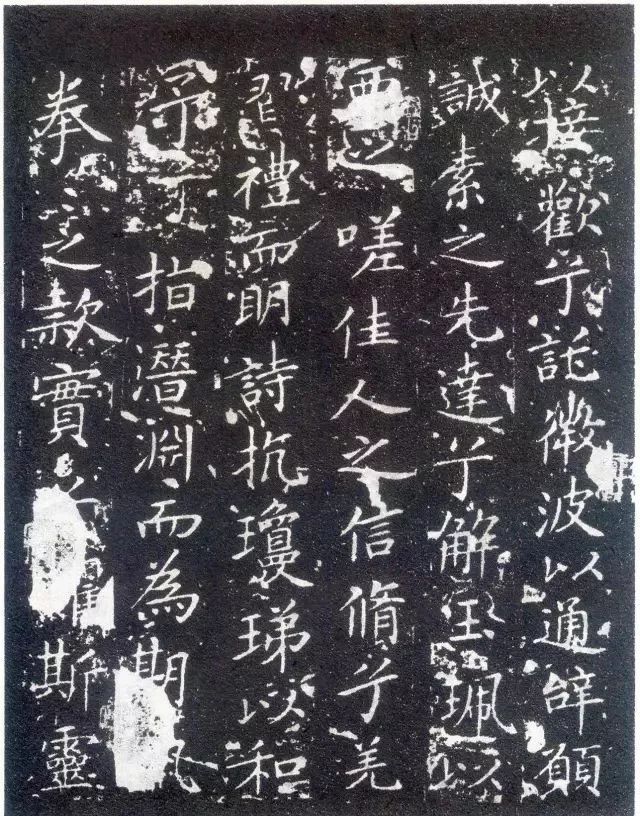 以接歡兮託微波以通辝願
誠素之先達兮解玉珮以
要之嗟佳人之信脩兮羌
習禮而眀詩抗瓊珶以和
予兮指潛淵而為期
拳〻之款實斯靈